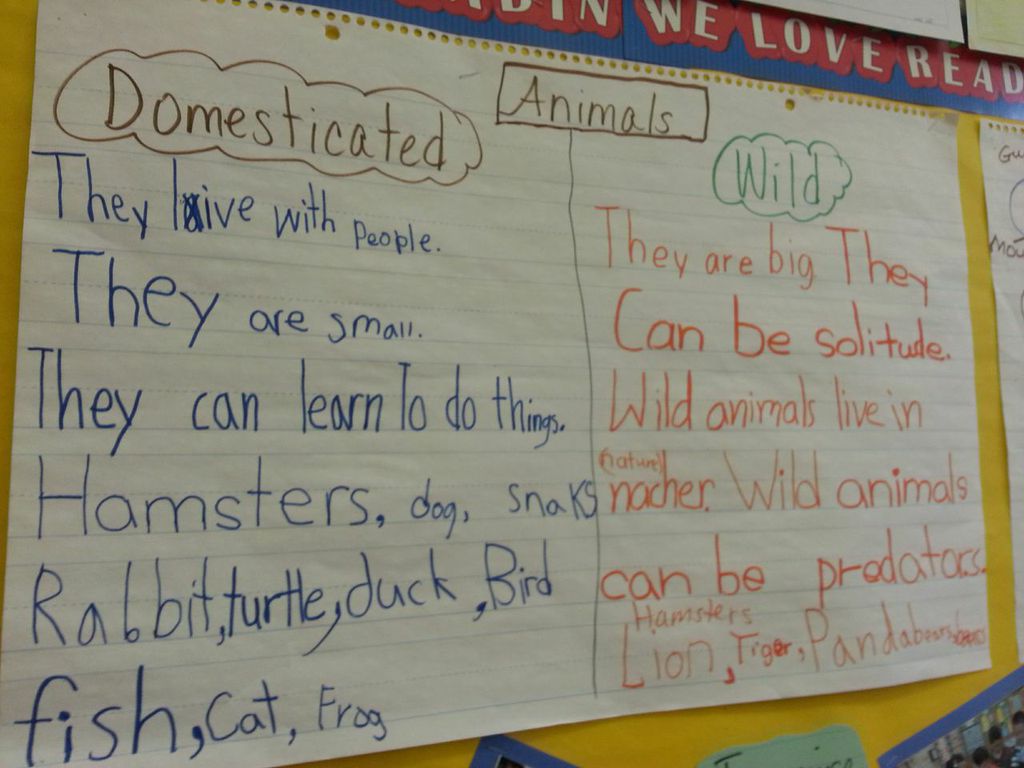 WE LOVE READ
Animals
Domesticated
They live with people.
They are small.
They can learn To do things.
Hamsters, dog, snaks
Rabbit, turtle, duck, Bird
fish, Cat, Frog
Wild
They are big They
Can be solitude.
Wild animals live in
(nature)
nacher. Wild animals
can be predators.
Hamsters
Lion, Tiger, Pandabears
Gu
Mou